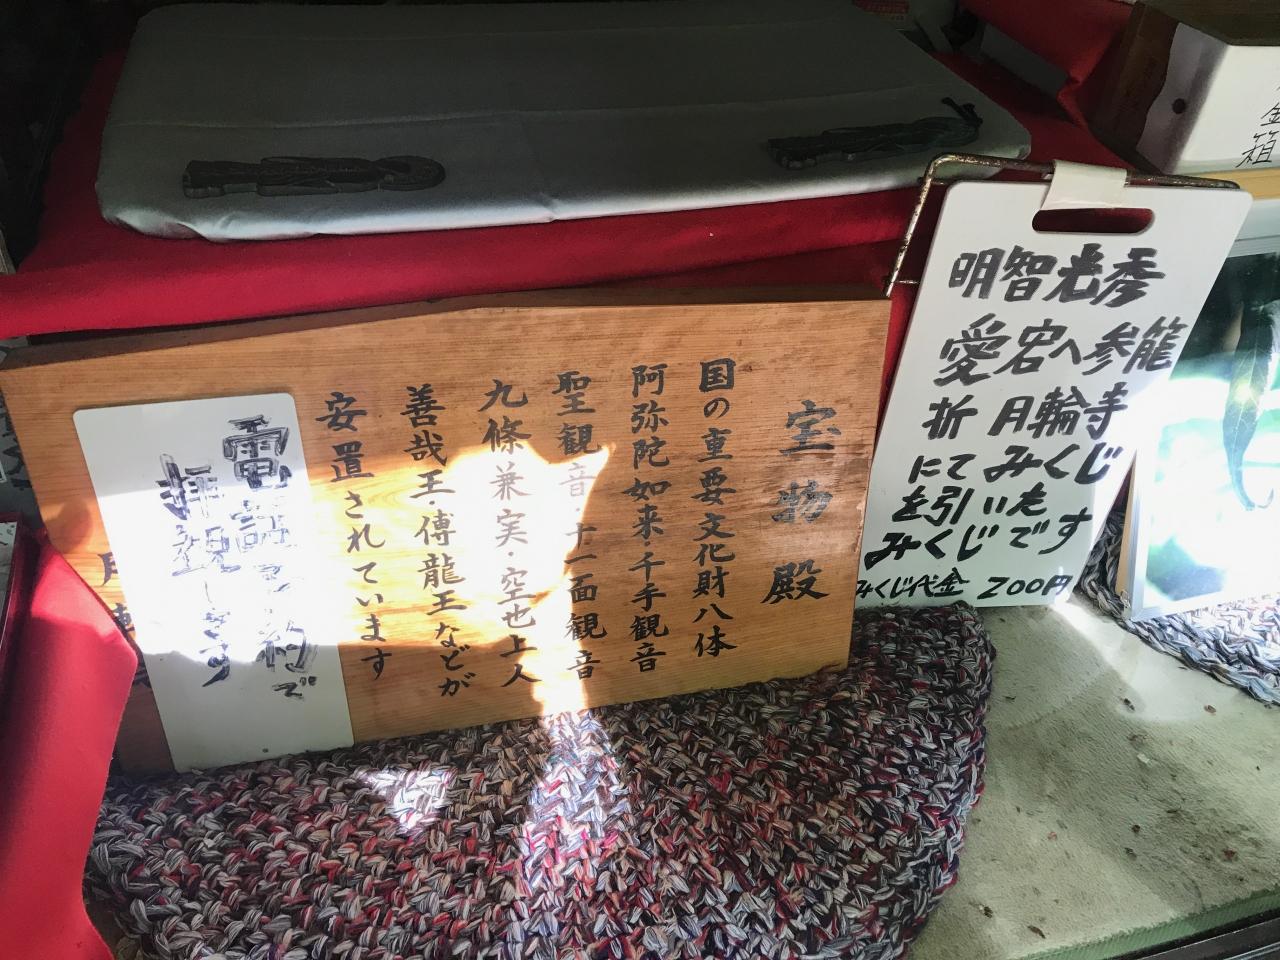 宝物殿
国の重要文化財八体
阿弥陀如来千手観音
聖観音十一面観音
九條兼実・空也上人
善哉王・傅龍王などが
安置されています
電話予約で
拝観します
明智光秀
愛宕へ参籠
折月輪寺
にてみくじ
を引いた
みくじです
みくじ代金 200円
金箱